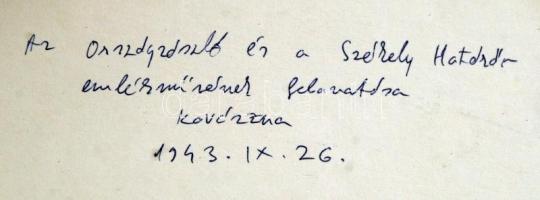 Az Országzászló és a Székely Határőr
emlékművének felavatása
Kovászna
1943. IX. 26.